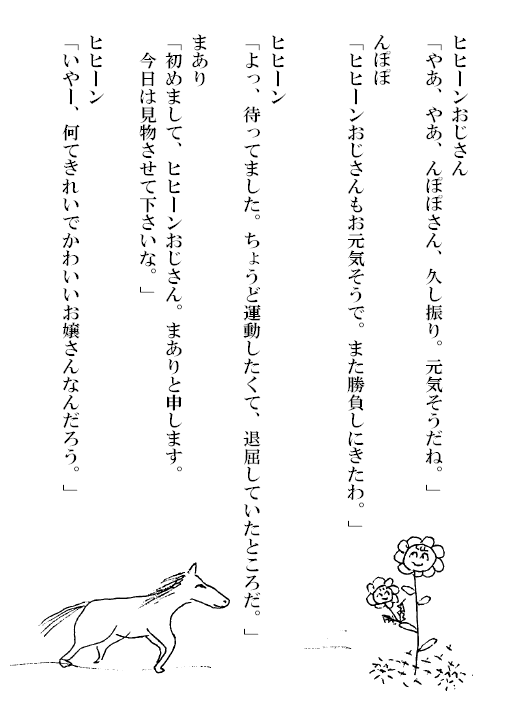 ヒヒーンおじさん
「やあ、やあ、んぽぽさん、久し振り。元気そうだね。」
んぽぽ
「ヒヒーンおじさんもお元気そうで。また勝負しにきたわ。」
ヒヒーン
「よっ、待ってました。ちょうど運動したくて、退屈していたところだ。」
まあり
「初めまして、ヒヒーンおじさん。まありと申します。
今日は見物させて下さいな。」
ヒヒーン
「いやー、何てきれいでかわいいお嬢さんなんだろう。」